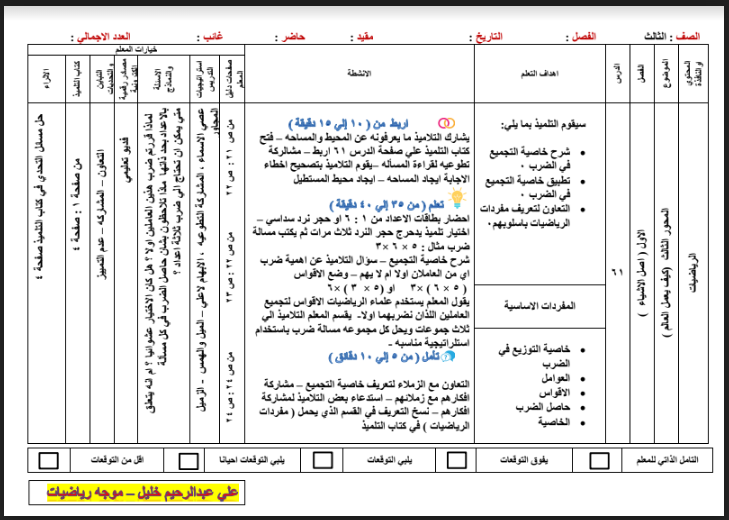 الصف : الثالث الفصل : التاريخ : مقيد : حاضر : غائب : العدد الاجمالي :
المحتوي او النافذة
الموضوع
الفصل
الدرس
اهداف التعلم
الانشطة
خيارات المعلم
صفحات دليل المعلم
استراتيجيات التدريس
الاسئلة والنماذج
مصادر رقمية
التباين والتحديات
كتاب التلميذ
الاثراء
الرياضيات
المحور الثالث (كيف يعمل العالم )
الاول ( اصل الاشياء )
سيقوم التلميذ بما يلي:
شرح خاصية التجميع
في الضرب ٠
تطبيق خاصية التجميع
في الضرب ٠
التعاون لتعريف مفردات
الرياضيات باسلوبهم٠
المفردات الاساسية
خاصية التوزيع في
الضرب
العوامل
الاقواس
حاصل الضرب
الخاصية
اربط من ( ١٠ إلي ١٥ دقيقة )
يشارك التلاميذ ما يعرفونه عن المحيط والمساحه – فتح
كتاب التلميذ علي صفحة الدرس ٦١ اربط – مشالركة
تطوعيه لقراءة المسأله –يقوم التلاميذ بتصحيح اخطاء
الاجابة ايجاد المساحه – ايجاد محيط المستطيل
تعلم ( من ٣٥ إلي ٤٠ دقيقة )
احضار بطاقات الاعداد من ١ : ٦ او حجر نرد سداسي –
اختيار تلميذ يدحرج حجر النرد ثلاث مرات ثم يكتب مسالة
ضرب مثال : ٥ × ٦ ×٣
شرح خاصية التجميع – سؤال التلاميذ عن اهمية ضرب
اي من العاملان اولا ام لا يهم – وضع الاقواس
( ٥ × ٦ ) ×٣ او (٥ × ٣ ) ×٦
يقول المعلم يستخدم علماء الرياضيات الاقواس لتجميع
العاملين اللذان نضربهما اولا- يقسم المعلم التلاميذ الي
ثلاث جموعات ويحل كل مجموعه مسالة ضرب باستخدام
استلراتيجية مناسبه -
تأمل ( من ٥ إلي ١٠ دقائق )
التعاون مع الزملاء لتعريف خاصية التجميع – مشاركة
افكارهم مع زملانهم – استدعاء بعض التلاميذ لمشاركة
افكارهم – نسخ التعريف في القسم الذي يحمل ( مفردات
الرياضيات ) في كتاب التلميذ
من ص ٢١ : ص ٢٢
من ص ٢٢ : ص ٢٣
من ص ٢٤ : ص ٢٤
عصي الاسماء ، المشاركة التطوعيه ، الابهام لاعلي – الميل والهمس - الزميل
المجاور
متي يمكن ان تحتاج الي ضرب ثلاثة اعداد ؟
لماذا قررتم ضرب هذين العاملين اولا ؟ هل كان الاختيار عشوائيا ؟ ام انه يتعلق
بالاعداد بحد ذاتها ماذا تلاحظون بشان حاصل الضرب في كل مسألة
فديو تعليمي
التعاون – المشاركه – عدم التمييز
من صفحة ١ : صفحة ٤
حل مسائل التحدي في كتاب التلميذ صفحة ٤
التامل الذاتي للمعلم
يفوق التوقعات
يلبي التوقعات
يلبي التوقعات احيانا
اقل من التوقعات
علي عبدالرحيم خليل – موجه رياضيات